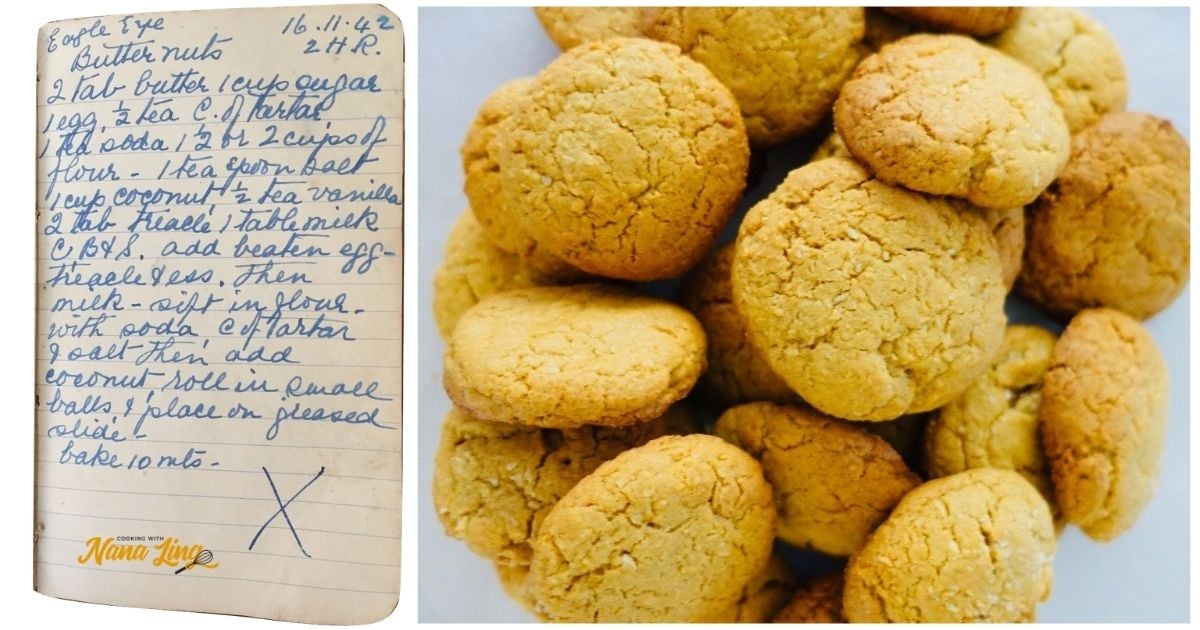 Eagle Eye 16.11.42
Butter nuts 2 H R.
2 tab butter 1 cup sugar
1 egg, ½ tea C. of tartar
1 tea soda 1½ or 2 cups of
flour - 1 tea spoon salt
1 cup coconut ½ tea vanilla
2 tab treacle 1 table milk
C B & S. add beaten egg -
treacle & ess. Then
milk - sift in flour.
with soda, C of tartar
& salt then add
coconut roll in small
balls & place on greased
slide -
bake 10 mts -
X
COOKING WITH
Nana Ling